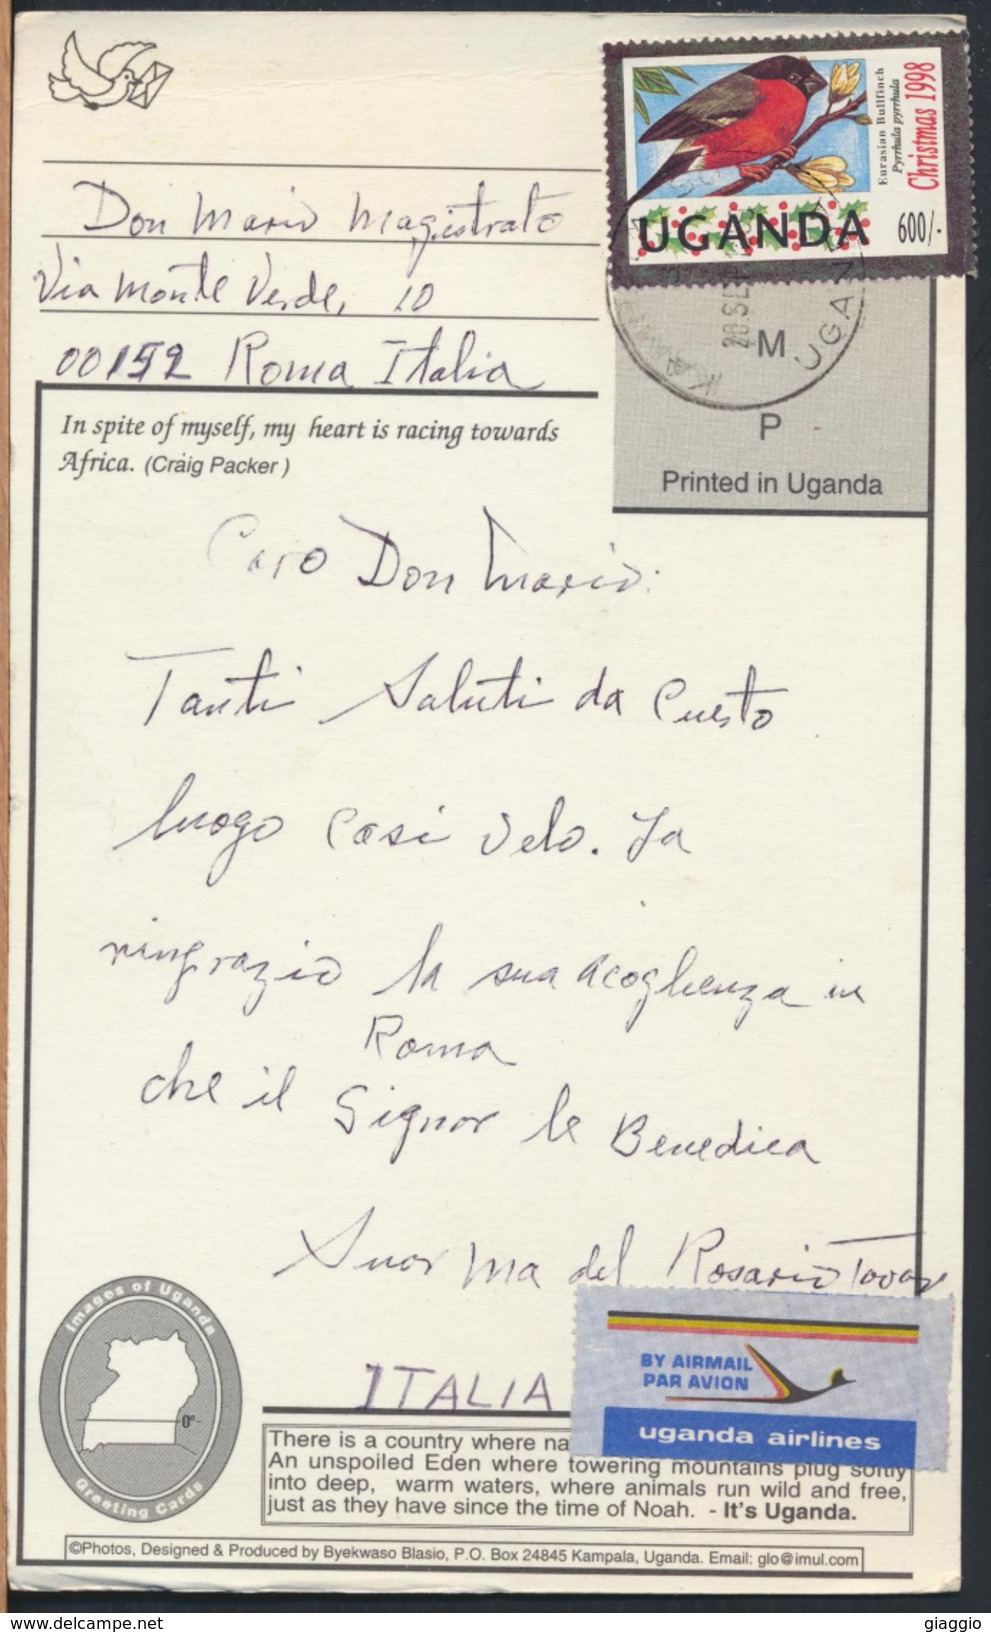 Eurasian Bullfinch
Pyrrhula pyrrhula
Christmas 1998
UGANDA 600/-
Don Mario Magistrato
Via Monte Verde, 10
00152 Roma Italia
28 SE
UGAN
M
P
Printed in Uganda
In spite of myself, my heart is racing towards
Africa. (Craig Packer)
Caro Don Mario:
Tanti Saluti da Cuesto
luogo Cosi velo. La
ringrazio la sua acoglienza in
Roma
che il Signor le Benedica
Suor Ma del Rosario
ITALIA
BY AIRMAIL
PAR AVION
uganda airlines
Images of Uganda
0°
Greeting Cards
There is a country where na
An unspoiled Eden where towering mountains plug softly
into deep, warm waters, where animals run wild and free,
just as they have since the time of Noah. - It's Uganda.
©Photos, Designed & Produced by Byekwaso Blasio, P.O. Box 24845 Kampala, Uganda. Email: glo@imul.com
www.delcampe.net
giaggio